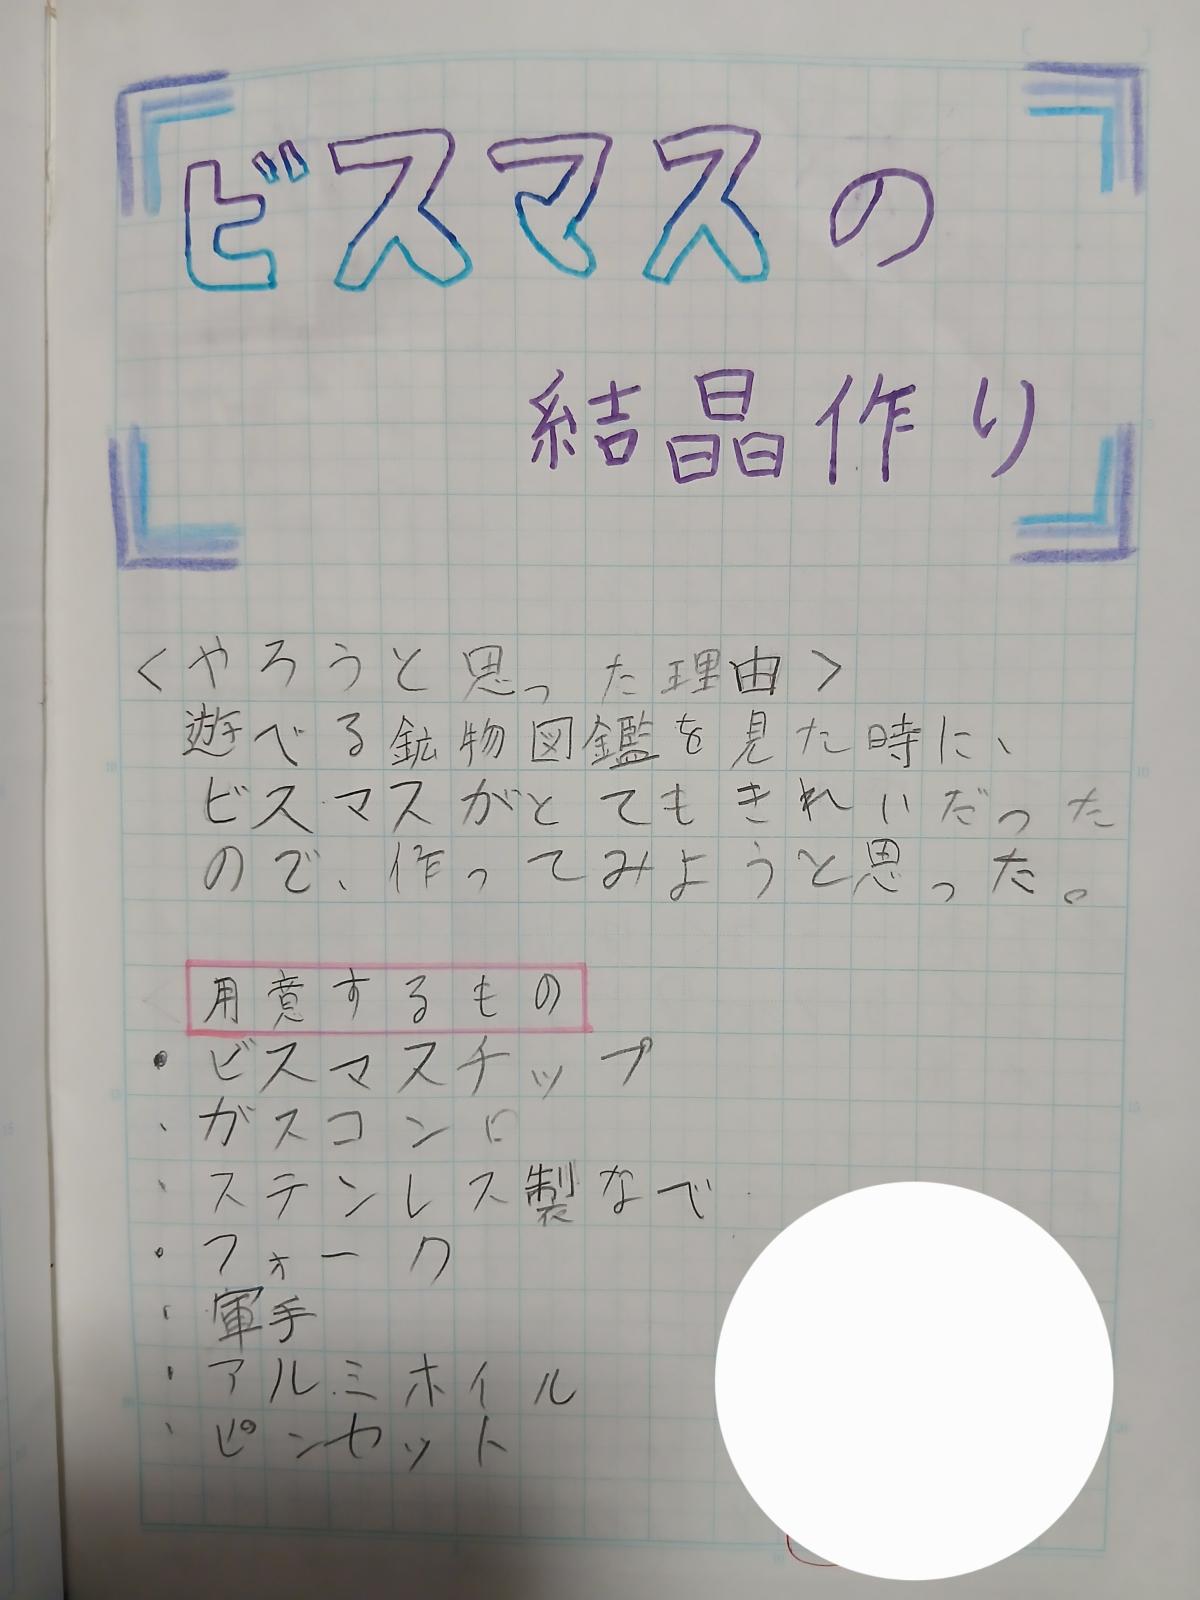 ビスマスの
結晶作り
<やろうと思った理由>
遊べる鉱物図鑑を見た時に、
ビスマスがとてもきれいだった
ので、作ってみようと思った。
用意するもの
・ビスマスチップ
・ガスコンロ
・ステンレス製なべ
・フォーク
・軍手
・アルミホイル
・ピンセット